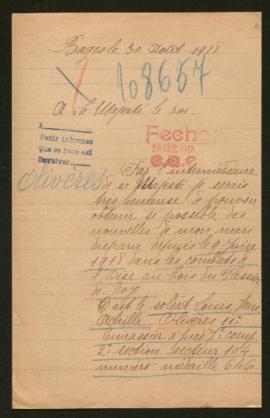 Bages le 30 Août 1918
108657
A sa Majesté le roi
A
Pedir informes
Que se hace así
Devolver
Fecha
20 SET. 1918
Oliveres
Par l'intermédiaire
de sa Majesté je serais
très heureuse de pouvoir
obtenir si possible des
nouvelles de mon mari
disparu depuis le 9 Juin
1918 dans les combats de
l'Oise au bois du
C'est le soldat Louis, Jean
Achille Oliveres 11e
Cuirassier à pied 1e comp
2e section secteur 104
numéro médaille 646